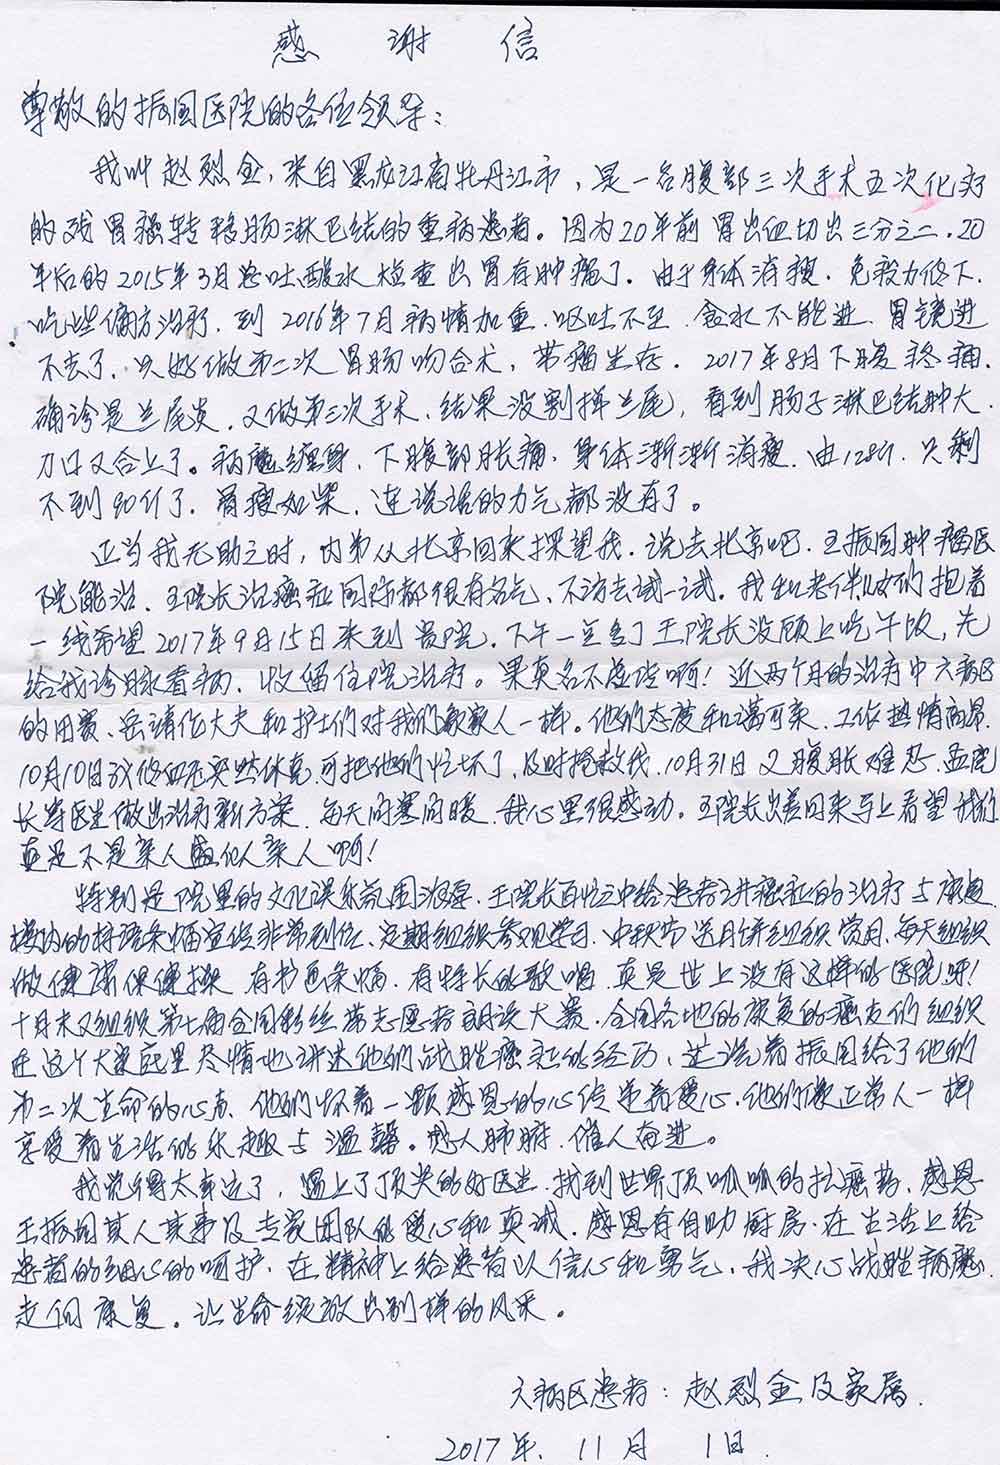 感谢信
尊敬的振国医院的各位领导：
我叫赵烈金，来自黑龙江省牡丹江市，是一名腹部三次手术五次化疗
的残胃癌转移肠淋巴结的重病患者。因为20年前胃出血切出三分之二．20
年后的2015年3月总吐酸水检查出胃有肿瘤了．由于身体消瘦．免疫力低下．
吃些偏方治疗．到2016年7月病情加重．呕吐不至．食水不能进．胃镜进
不去了．只好做第二次胃肠吻合术，带瘤生存．2017年8月下腹疼痛．
确诊是兰尾炎．又做第三次手术．结果没割掉兰尾，看到肠子淋巴结肿大．
刀口又合上了。病魔缠身．下腹部胀痛．身体渐渐消瘦．由128斤．只剩
不到90斤了．骨瘦如柴．连说话的力气都没有了。
正当我无助之时，内弟从北京回来探望我．说去北京吧．王振国肿瘤医
院能治．王院长治癌症国际都很有名气．不访去试一试。我和老伴儿女们抱着
一线希望2017年9月15日来到贵院．下午一点多了王院长没顾上吃午饭，先
给我诊脉看病．收留住院治疗。果真名不虚传啊！近两个月的治疗中六病区
的田霙、岳靖佗大夫和护士们对我们象家人一样。他们态度和蔼可亲．工作热情高昂．
10月10日我修血尢突然休克．可把他们忙坏了，及时抢救我．10月31日又腹胀难忍．孟院
长等医生做出治疗新方案．每天问寒问暖．我心里很感动。王院长出差回来马上看望我们
真是不是亲人盛似亲人啊！
特别是院里的文化娱乐氛围浓厚．王院长百忙之中给患者讲癌症的治疗与康复．
楼内的标语条幅宣传非常到位．定期组织参观学习．中秋节送月饼组织赏月．每天组织
做健谛保健操．有书画条幅．有特长的歌唱．真是世上没有这样的医院呀！
十月末又组织第七届全国粉丝带志愿者朗读大赛．全国各地的康复的癌友们组织
在这个大家庭里尽情地讲述他们战胜癌症的经历，述说着振国给了他们
第二次生命的心声．他们怀着一颗感恩的心传递着爱心．他们像正常人一样
享受着生活的乐趣与温馨。感人肺腑．催人奋进。
我觉得太幸运了，遇上了顶尖的好医生．找到世界顶呱呱的抗癌药．感恩
王振国其人其事及专家团队的爱心和真诚．感恩有自助厨房．在生活上给
患者的细心的呵护．在精神上给患者以信心和勇气．我决心战胜病魔．
走向康复。让生命绽放出别样的风采。
六病区患者：赵烈金及家属．
2017年．11月1日．